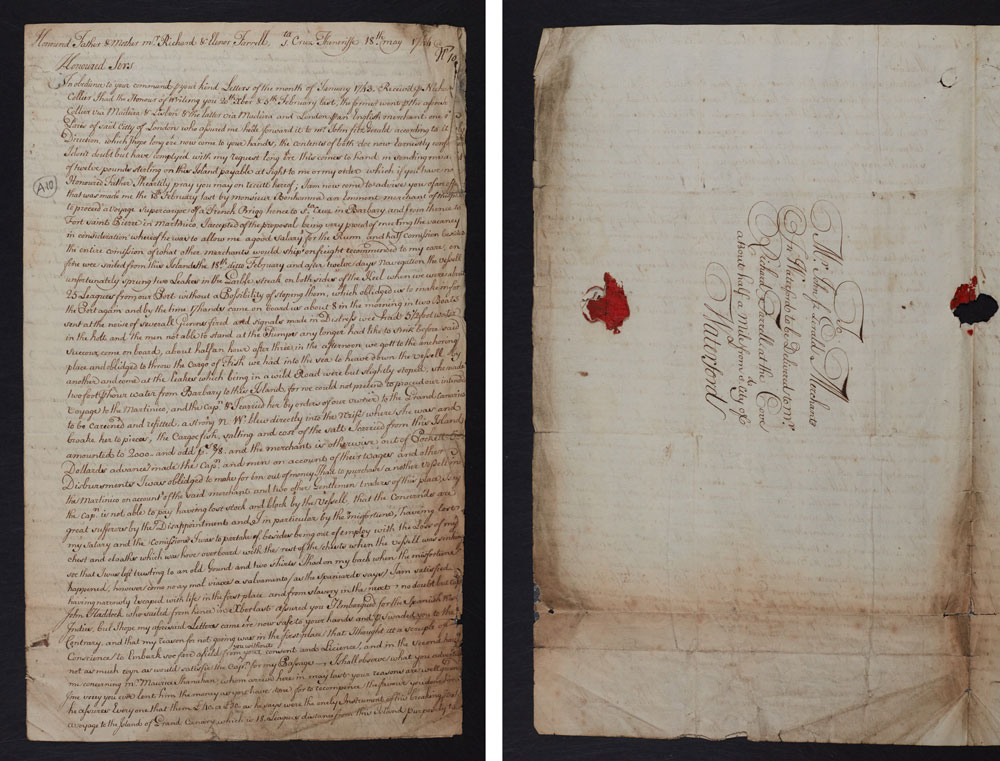 Honoured Father & Mother mr. Richard & Elenor Farrell Sta. Cruz Theneriffe 18th. may
Honoured Sirs
In obedience to your command p your kind Letters of the month of January 1743. Received p Richard
Collier I had the Honour of writing you & 5th February last, the former went p the afores.
Collier via Madeira & Lisbon & the latter via Madeira and London p an English merchant one
of said City of London who assured me he'd forward it to mr. John fitz Gerald according to
Direction, which I hope long ere now come to your hands, the contents of both doe now earnestly
I don't doubt but have complyed with my request long ere this comes to hand, in sending me a
of twelve pounds sterling on this Island payable at sight to me or my order which if you have no
Honoured Father I heartily pray you may on receit hereof; I am now come to advise you of an offer
that was made me the February last by monsieur an Eminent merchant of this
to proceed a voyage Supercargoe of a French Brigg hence to Sta. Cruz in Barbary, and from thence to
Fort Saint Pierre in Martinico I accepted of the proposal being very proud of meeting the vacancy
in consideration whereof he was to allow me a good Salary for the Runn and half comission
the entire comission of what other merchants would ship on freight recommened to my care, on
sett ee sailed from this Island the 18th. ditto February and after twelve days Navigation the vessell
unfortunately sprung two Leakes in the struck on both sides of the Keel when we were about
25 Leagues from our Port without a Possibility of stoping them, which obliedged us to make
the Port again and by the time 17 hands came on board us about 8 in the morning in two Boats
sent at the newes of severall Gunns fired and signals made in Distress wee had 5½ foot water
in the hole and the men not able to stand at the Pumps any longer had like to Sink before said
Succour come on board, about half an hour after three in the afternoon we gott to the anchoring
place and oblidged to throw the Cargo of Fish we had into the sea to heave down the vessell
another and come at the leakes which being in a wild Road were but slightly stoped, she made
two foot p hour water from Barbary to this Island, for wee could not pretend to proceed our intended
Voyage to the Martinico, and the Capn. & I carried her by orders of our owner to the Grand Canaries
to be careined and refitted, a strong N.W. blew directly into the Reife where she was and
broake her to pieces, the Cargo fish, salting and cost of the salt I carried from this Island
amounted to 2000 and odd ps. 8/8. and the merchant is otherwise out of Pockett
Dollards advance made the Capn. and men on accounts of their wages and other
Disbursments I was oblidged to make for him out of money I had to purchase another vessell in
the Martinico on account of the said merchant and two other Gentlemen traders of this place
the Capn. is not able to pay having lost stock and block by the vessell, that the Concern'ds are
great sufferors by the Disappointments and I in particular by the misfortune, having lost
my salary and the comissions I was to partake of besides being out of employ with the Loss of my
chest and cloaths which was hove overboard with the rest of the chests when the vessell was sinking
soe that I was left trusting to an old Gound and two shirts I had on my back when the misfortune
happened, however como no ay mal viaxe a salvamento (as the Spaniards says) I am satisfied
having narowly Escaped with life in the first place, and from slavery in the next; no doubt but
John Haddock who sailed from hence in Xber last assured you I Imbarqued for the Spannish West
Indies, but I hope my aforesaid Letters came ere now safe to your hands and p swaded you to the
Contrary, and that my reason for not going was in the first place that I thought it a scruple of
Conscience to Embark soe fare afield from you without your consent and Licience, and in the second having
not as much Coyn as would satisfie the Capn. for my Passage — I shall observe what you ordered
me concerning mr. Maurice Shanahan, whom arrived here in may last your reasons are well
Ime very you ever lent him the money as you have now for to recompence the favour you done him
he assures Every one that them as he says were the onely Instrument of his breaking
a voyage to the Island of Grand Canary which is 18 Leagues distance from this Island purposely to
A20
To
Mr. John fz. Geralld Merchants
In Waterford to be Delivered to mr.
Richard Farrell at the Cove
about half a mile from ye. City of
Waterford